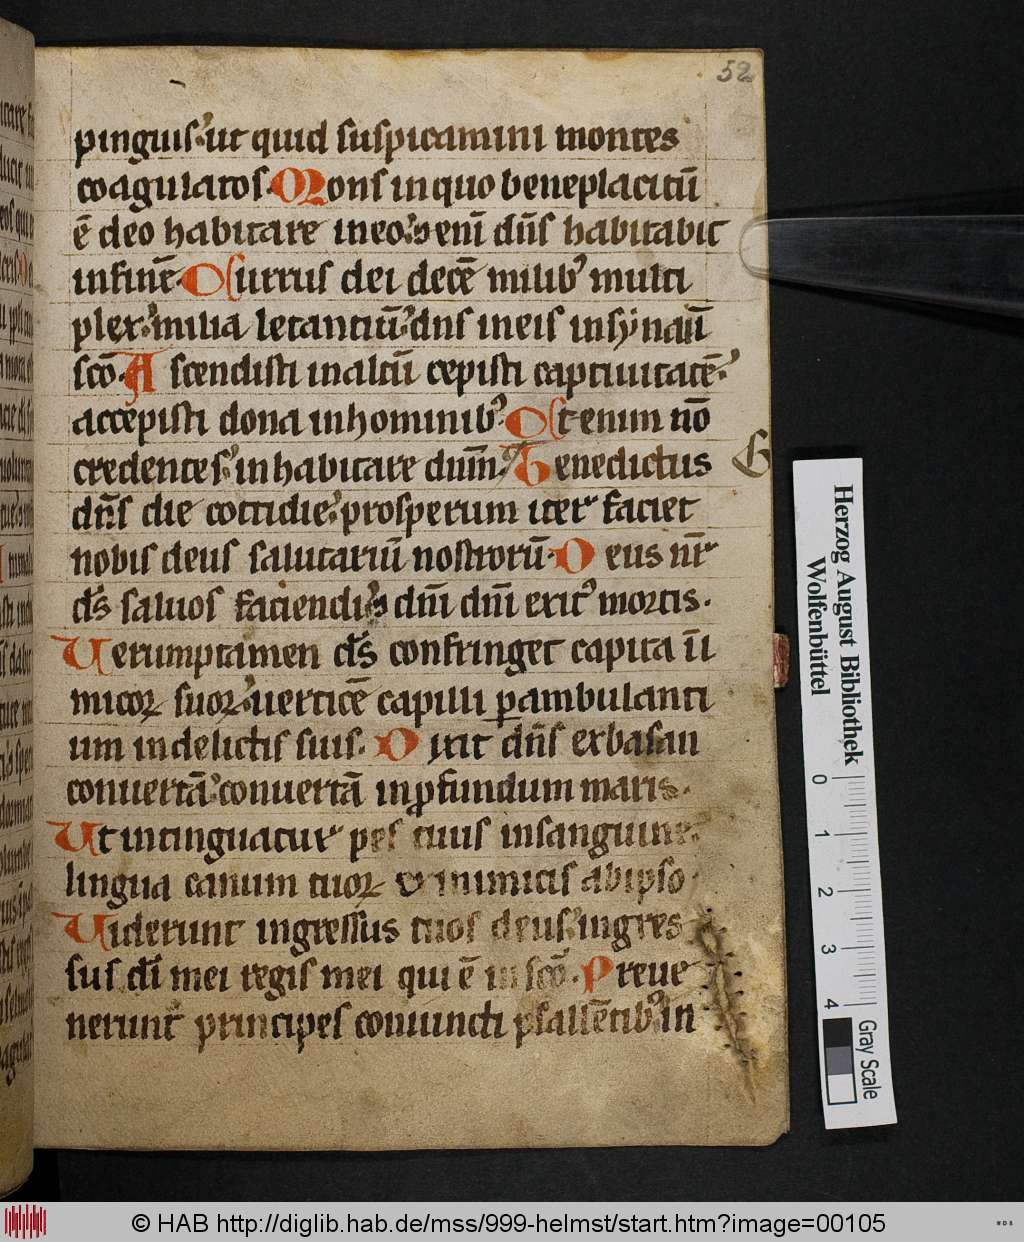 52
pinguis ut quid suspicamini montes
coagulatos. Mons in quo beneplacitū
ē deo habitare in eo enī dn̄s habitabit
in finē. Currus dei decē milib᾽ multi
plex milia letantiū dns in eis in syna in
scō. Ascendisti in altū cepisti captiuitatē
accepisti dona in hominib᾽. Et enim nō
credentes inhabitare dnm̄. Benedictus
G
dn̄s die cottidie prosperum iter faciet
nobis deus salutariū nostrorū. Deus nr̄
ds̄ saluos faciendi dnī dnī exit᾽ mortis.
Uerumptamen ds̄ confringet capita inī
micoꝝ suoꝝ uerticē capilli ꝑambulanti
um in delictis suis. Dixit dn̄s ex basan
conuertā conuertā in ꝓfundum maris.
Ut intinguatur pes tuus in sanguine
lingua canum tuoꝝ ex inimicis ab ipso
Uiderunt ingressus tuos deus ingres
sus dī mei regis mei qui ē in scō. Preue
nerunt principes coniuncti psallētib᾽ in
Herzog August Bibliothek
Wolfenbüttel
0 1 2 3 4
Gray Scale
© HAB http://diglib.hab.de/mss/999-helmst/start.htm?image=00105